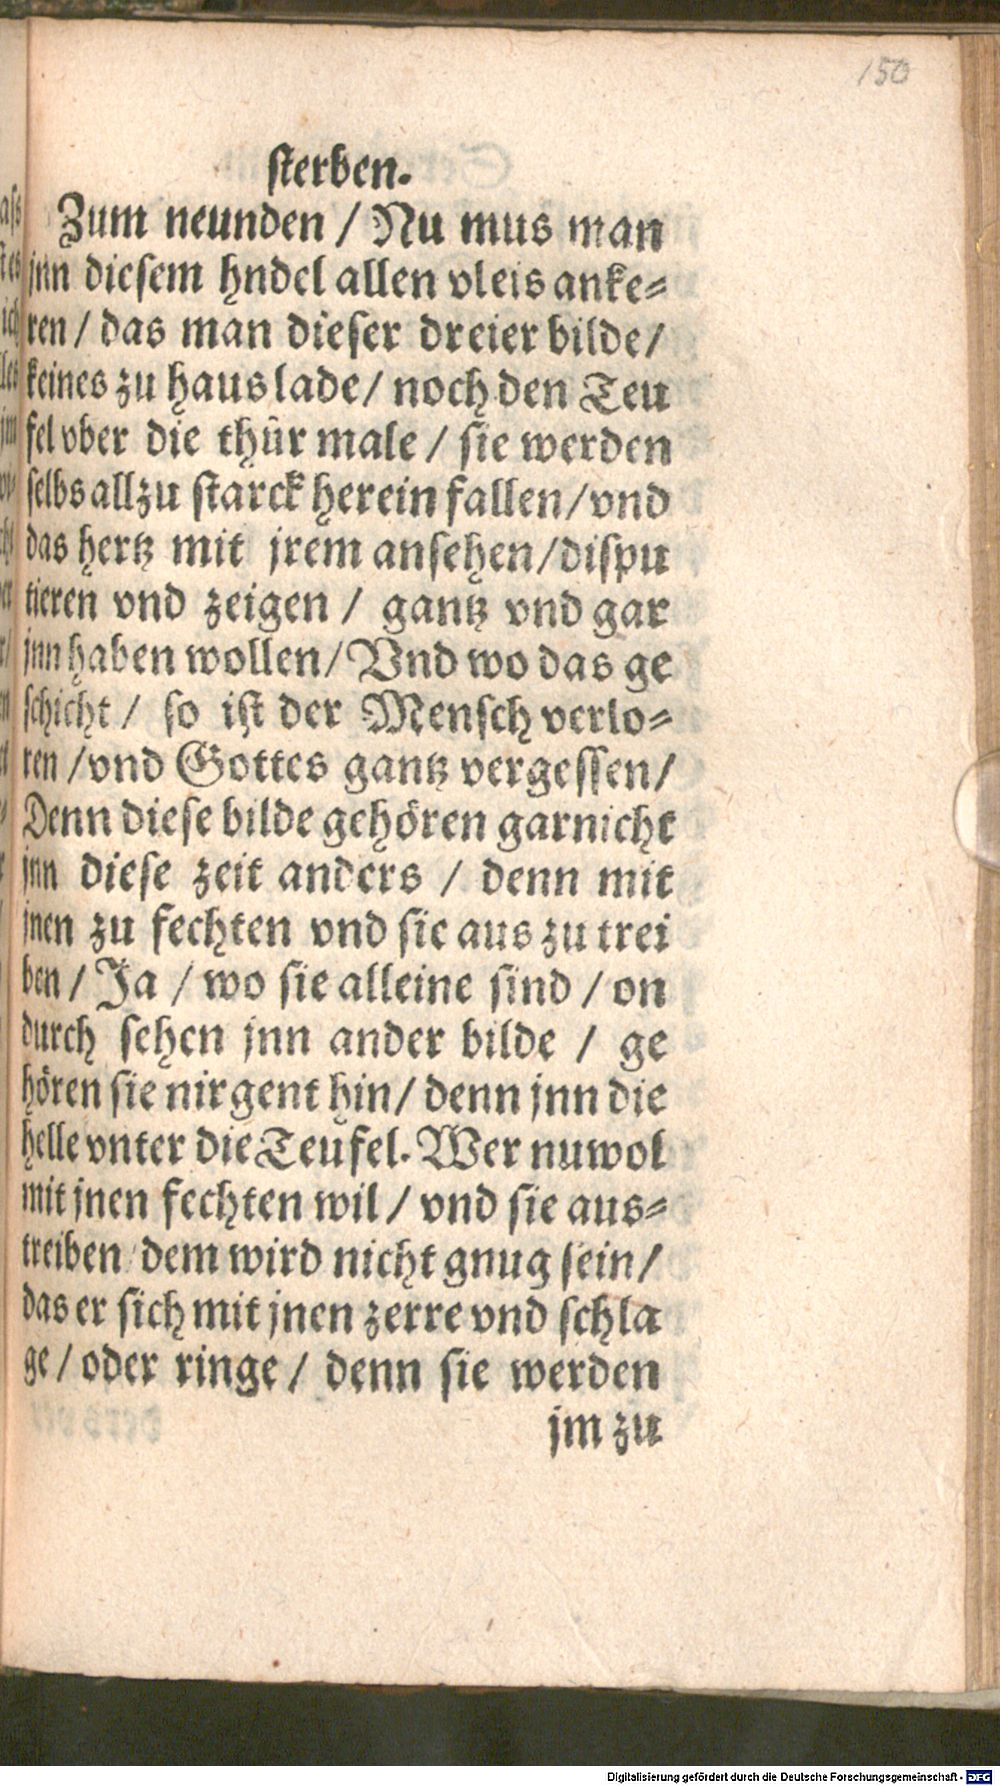 150
sterben.
Zum neunden / Nu mus man
jnn diesem hndel allen vleis anke=
ren / das man dieser dreier bilde /
keines zu haus lade / noch den Teu
fel vber die thür male / sie werden
selbs allzu starck herein fallen / vnd
das hertz mit jrem ansehen / dispu
tieren vnd zeigen / gantz vnd gar
jnn haben wollen / Vnd wo das ge
schicht / so ist der Mensch verlo=
ren / vnd Gottes gantz vergessen /
Denn diese bilde gehören garnicht
jnn diese zeit anders / denn mit
jnen zu fechten vnd sie aus zu trei
ben / Ja / wo sie alleine sind / on
durch sehen jnn ander bilde / ge
hören sie nirgent hin / denn jnn die
helle vnter die Teufel. Wer nuwol
mit jnen fechten wil / vnd sie aus=
treiben / dem wird nicht gnug sein /
das er sich mit jnen zerre vnd schla
ge / oder ringe / denn sie werden
jm zu
Digitalisierung gefördert durch die Deutsche Forschungsgemeinschaft - DFG